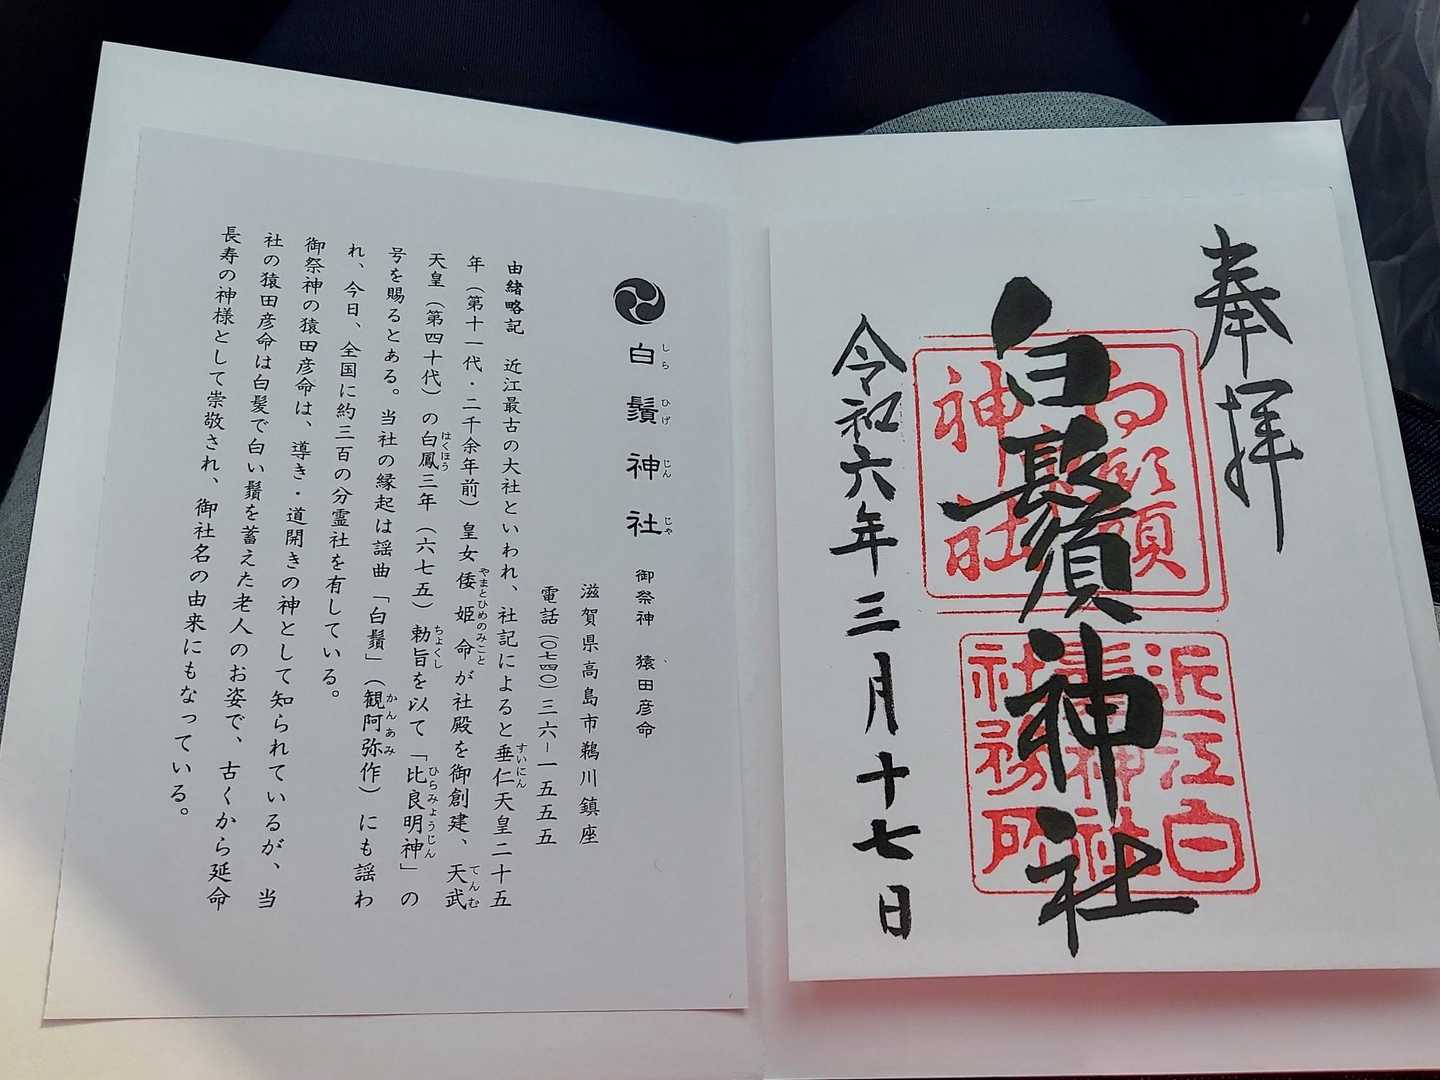 奉拝
白鬚神社
令和六年三月十七日
白鬚神社
近江白
鬚神社
社務所
白鬚神社 御祭神 猿田彦命
しらひげじんじゃ
滋賀県高島市鵜川鎮座
電話(〇七四〇)三六－一五五五
由緒略記 近江最古の大社といわれ、社記によると垂仁天皇二十五
すいにん
年(第十一代・二千余年前)皇女倭姫命が社殿を御創建、天武
やまとひめのみこと てんむ
天皇(第四十代)の白鳳三年(六七五)勅旨を以て「比良明神」の
はくほう ちょくし ひらみょうじん
号を賜るとある。当社の縁起は謡曲「白鬚」(観阿弥作)にも謡わ
かんあみ
れ、今日、全国に約三百の分霊社を有している。
御祭神の猿田彦命は、導き・道開きの神として知られているが、当
社の猿田彦命は白髪で白い鬚を蓄えた老人のお姿で、古くから延命
長寿の神様として崇敬され、御社名の由来にもなっている。